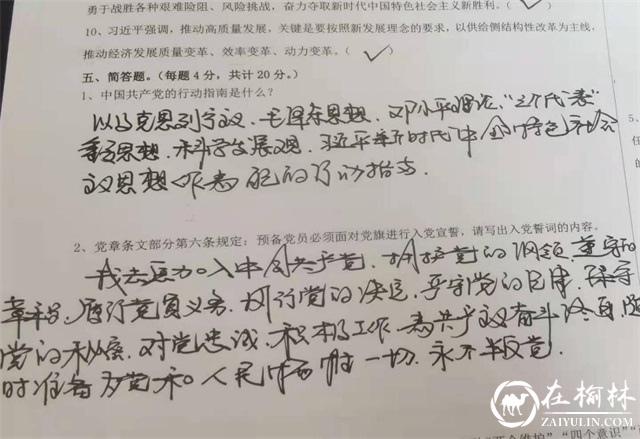 勇于战胜各种艰难险阻、风险挑战，奋力夺取新时代中国特色社会主义新胜利。（✓）
10、习近平强调，推动高质量发展，关键是要按照新发展理念的要求，以供给侧结构性改革为主线，
推动经济发展质量变革、效率变革、动力变革。（✓）
五、简答题。（每题4分，共计20分。）
1、中国共产党的行动指南是什么？
以马克思列宁主义、毛泽东思想、邓小平理论、“三个代表”
重要思想、科学发展观、习近平新时代中国特色社会
主义思想作为的行动指南.
2、党章条文部分第六条规定：预备党员必须面对党旗进行入党宣誓，请写出入党誓词的内容。
我志愿加入中国共产党，拥护党的纲领，遵守党的
章程，履行党员义务，执行党的决定，严守党的纪律，保守
党的秘密，对党忠诚，积极工作，为共产主义奋斗终身，随
时准备为党和人民牺牲一切，永不叛党.
5、
任
的
“四个意识”
在榆林
ZAIYULIN.COM